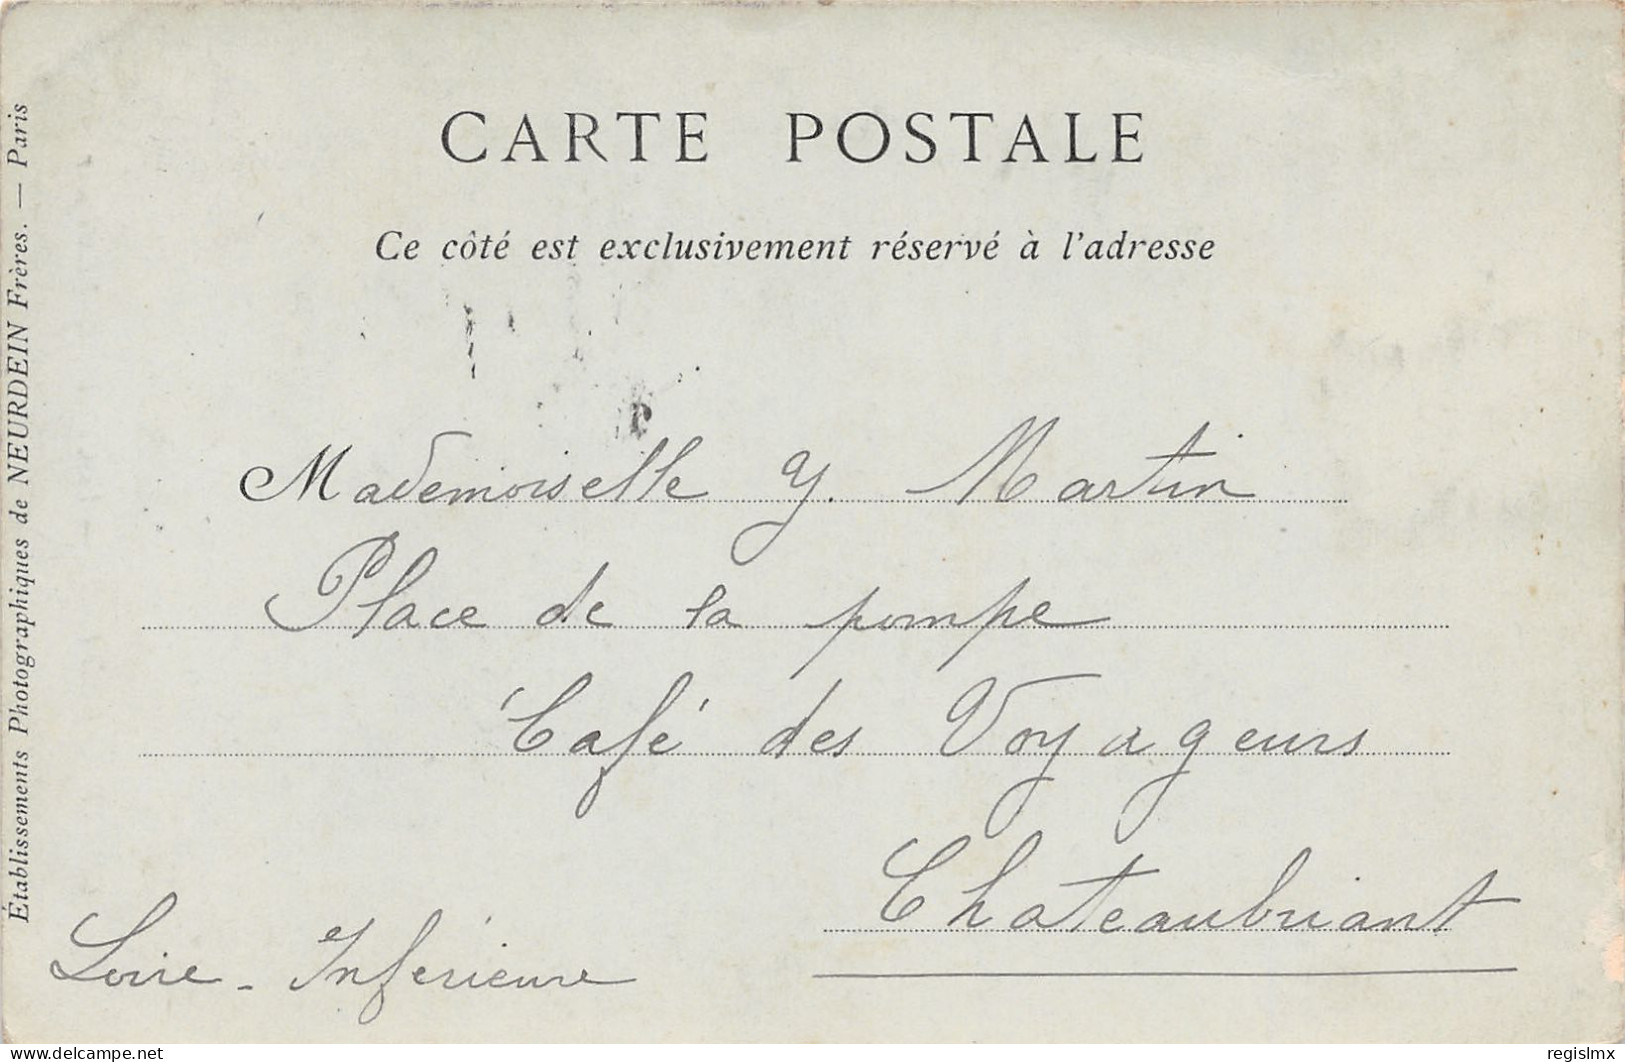 CARTE POSTALE
Ce côté est exclusivement réservé à l'adresse
Mademoiselle Y. Martin
Place de la pompe
Café des Voyageurs
Chateaubriant
Loire-Inférieure
Établissements Photographiques de NEURDEIN Frères. — Paris
www.delcampe.net
regislmx